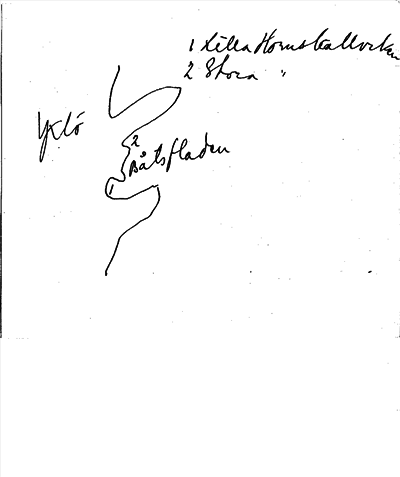 1 Lilla Hornskallviken
2 Stora "
Yxlö
2
Båtsfladen
1